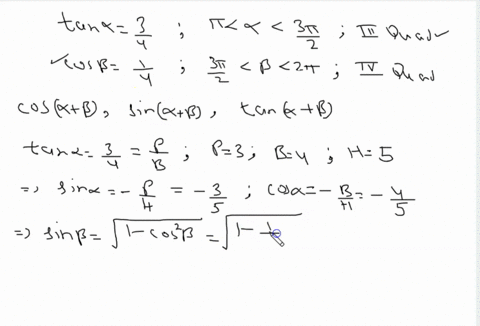 tanα = 3/4 ; π < α < 3π/2 ; III Quad ✓
✓ cosβ = 1/4 ; 3π/2 < β < 2π ; IV Quad
cos(α+β), sin(α+β), tan(α+β)
tanα = 3/4 = P/B ; P=3 ; B=4 ; H=5
=> sinα = -P/H = -3/5 ; cosα = -B/H = -4/5
=> sinβ = √(1-cos²β) = √(1-1